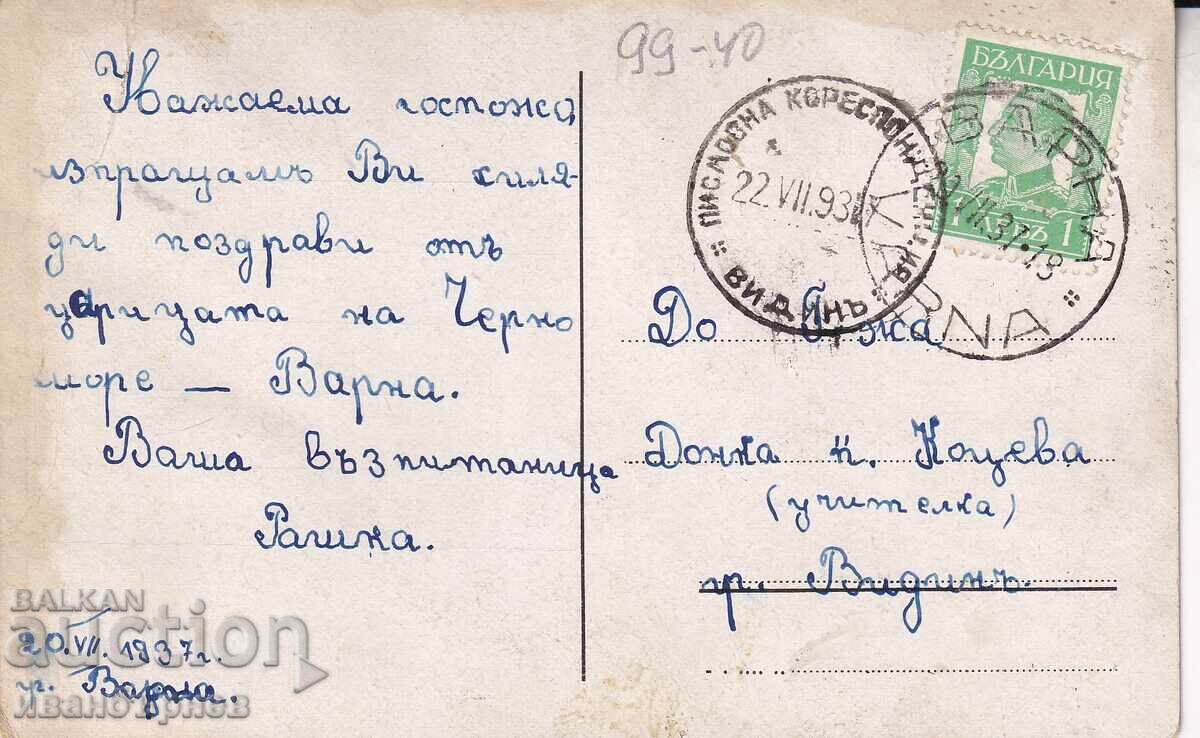 99-40
Уважаема госпожо,
изпращамъ Ви хиля-
ди поздрави отъ
царицата на Черно
море — Варна.
Ваша възпитаница
Рашка.
20.VII.1937г.
гр. Варна.
БЪЛГАРИЯ
1 ЛЕВЪ 1
ПИСМОВНА КОРЕСПОНДЕНЦИЯ
22.VII.93
ВИДИНЪ
ВАРНА
VII.37-18
VARNA
До Г-жа
Донка п. Коцева
(учителка)
гр. Видинъ.
BALKAN
auction